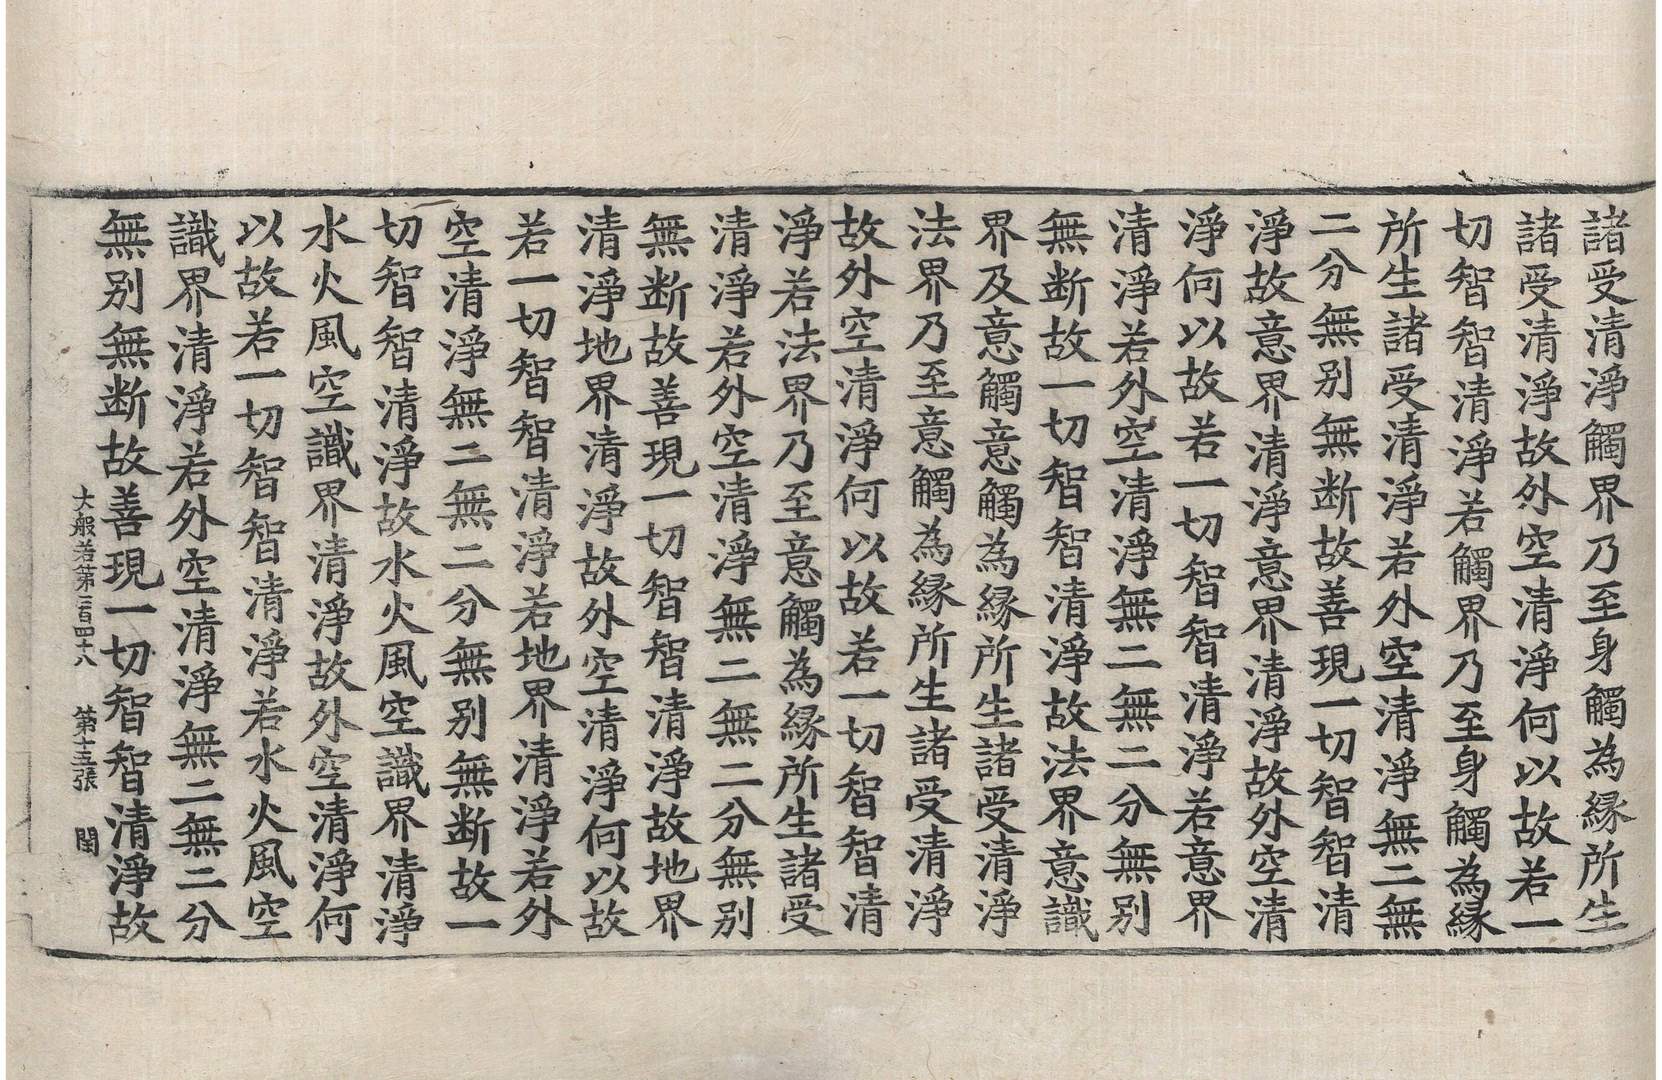 諸受清淨觸界乃至身觸為緣所生
諸受清淨故外空清淨何以故若一
切智智清淨若觸界乃至身觸為緣
所生諸受清淨若外空清淨無二無
二分無别無断故善現一切智智清
淨故意界清淨意界清淨故外空清
淨何以故若一切智智清淨若意界
清淨若外空清淨無二無二分無别
無断故一切智智清淨故法界意識
界及意觸意觸為緣所生諸受清淨
法界乃至意觸為緣所生諸受清淨
故外空清淨何以故若一切智智清
淨若法界乃至意觸為緣所生諸受
清淨若外空清淨無二無二分無别
無断故善現一切智智清淨故地界
清淨地界清淨故外空清淨何以故
若一切智智清淨若地界清淨若外
空清淨無二無二分無别無断故一
切智智清淨故水火風空識界清淨
水火風空識界清淨故外空清淨何
以故若一切智智清淨若水火風空
識界清淨若外空清淨無二無二分
無别無断故善現一切智智清淨故
大般若第二百四十八 第十五張 閏